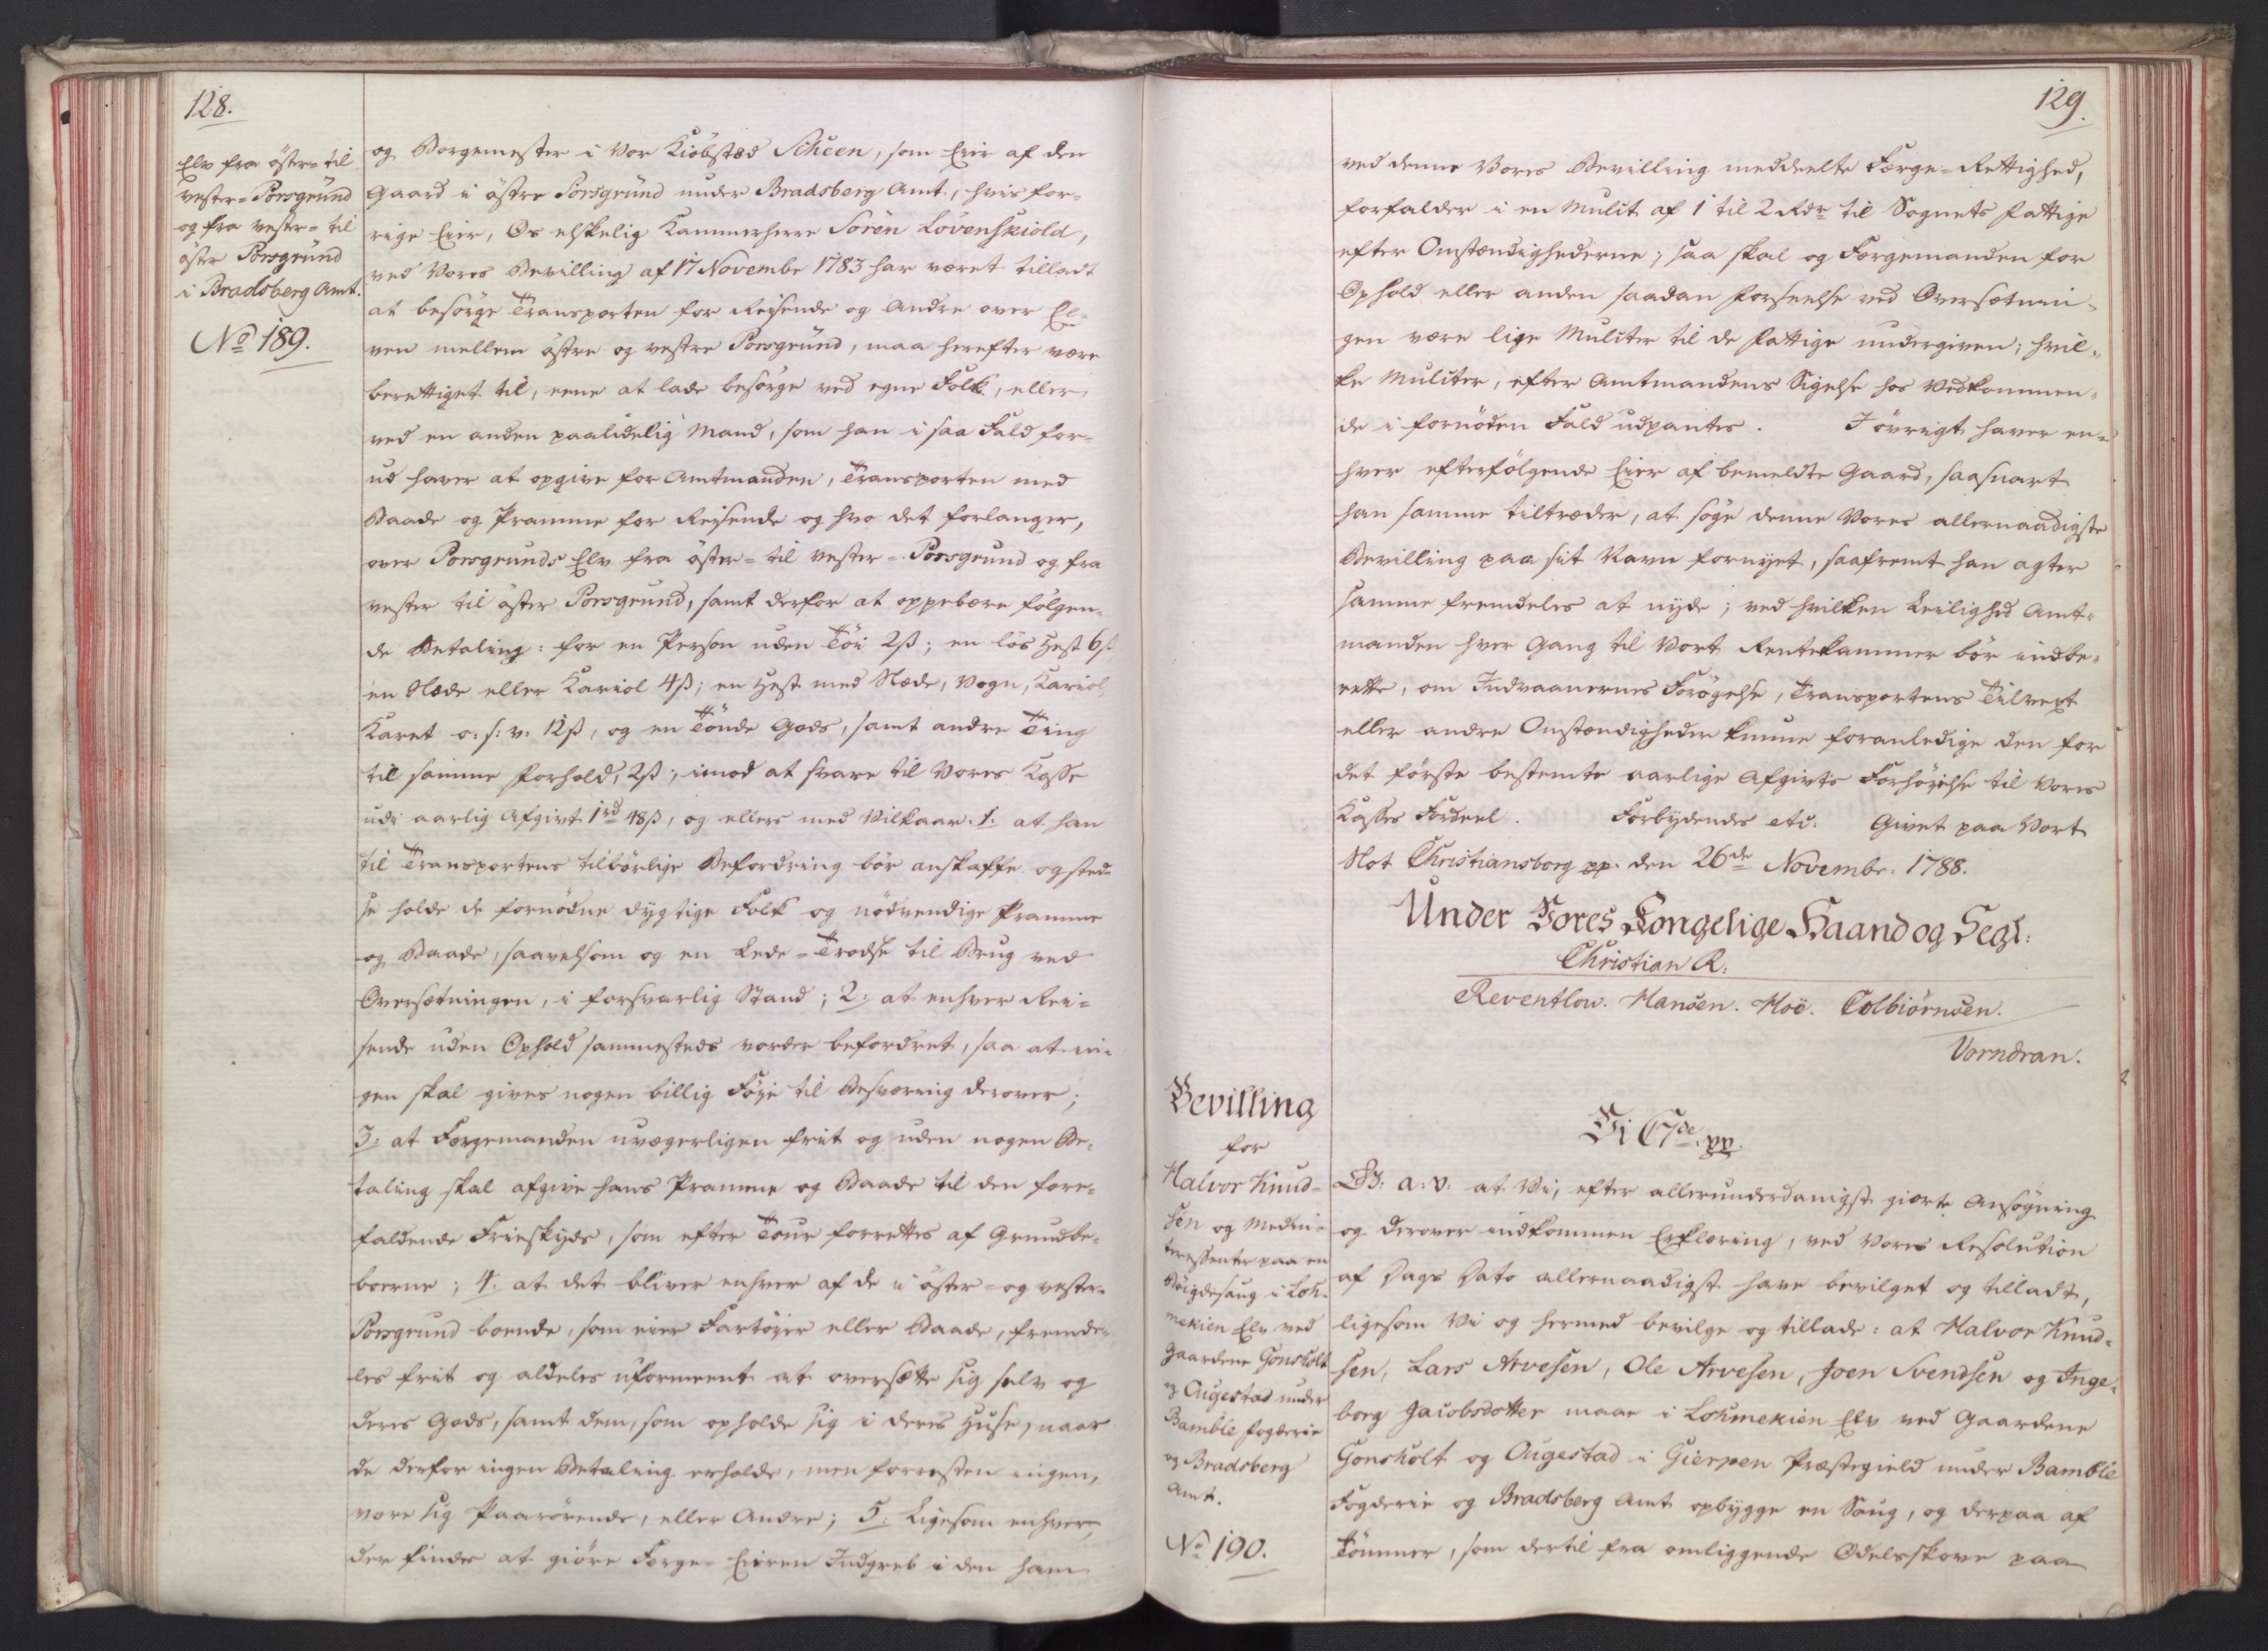 128.
Elv fra öster= til
vester= Porsgrund
og fra vester= til
öster Porsgrund
i Bradsberg Amt.
No 189.
og Borgemester i Vor Kiöbstæd Scheen, som Eier af den
Gaard i östre Porsgrund under Bradsberg Amt, hvis for=
rige Eier, Os elskelig Kammerherre Sören Lövenskiold,
ved Vores Bevilling af 17 Novembr 1783 har været tilladt
at besörge Transporten for Reisende og Andre over El=
ven mellem östre og vestre Porsgrund, maa herefter være
berettiget til, eene at lade besörge ved egne Folk, eller
ved en anden paalidelig Mand, som han i saa Fald for=
ud haver at opgive for Amtmanden, Transporten med
Baade og Pramme for Reisende og hvo det forlanger,
over Porsgrunds Elv fra öster= til vester= Porsgrund og fra
vester til öster Porsgrund, samt derfor at oppebære fölgen=
de Betaling: for en Person uden Töi 2ß; en lös Hest 6ß
en Slæde eller Kariol 4ß; en Hest med Slæde, Vogn, Kariol,
Karet o: s: v: 12ß, og en Tönde Gods, samt andre Ting
til samme Forhold, 2ß; imod at svare til Vores Kasse
udi aarlig Afgivt 1rd 48ß, og ellers med Vilkaar: 1: at han
til Transportens tilbörlige Befordring bör anskaffe og sted=
se holde de fornödne dygtige Folk og nödvendige Pramme
og Baade, saavelsom og en Lede=Trodse til Brug ved
Oversætningen, i forsvarlig Stand; 2: at enhver Rei=
sende uden Ophold sammesteds vorder befordret, saa at in=
gen skal gives nogen billig Föje til Besværing derover;
3: at Færgemanden uvægerligen friit og uden nogen Be=
taling skal afgive hans Pramme og Baade til den fore=
faldende Frieskyds, som efter Tour forrettes af Grundbe=
boerne; 4: at det bliver enhver af de i öster= og vester=
Porsgrund boende, som eier Fartöjer eller Baade, fremde=
les friit og aldeles uformeent at oversætte sig selv og
deres Gods, samt dem, som opholde sig i deres Huse, naar
de derfor ingen Betaling erholde, men forresten ingen,
være sig Paarörende, eller Andre; 5: Ligesom enhver,
der findes at giöre Færge=Eieren Indgreb i den ham
129.
ved denne Vores Bevilling meddeelte Færge=Rettighed,
forfalder i en Mulct af 1 til 2 Rdr til Sognets Fattige
efter Omstændighederne; saa skal og Færgemanden for
Ophold eller anden saadan Forseelse ved Oversætnin=
gen være lige Mulcter til de Fattige undergiven; hvil=
ke Mulcter, efter Amtmandens Sigelse hos Vedkommen=
de i fornöden Fald udpantes. I övrigt haver en=
hver efterfölgende Eier af bemeldte Gaard, saasnart
han samme tiltræder, at söge denne Vores allernaadigste
Bevilling paa sit Navn fornyet, saafremt han agter
samme fremdeles at nyde; ved hvilken Leilighed Amt=
manden hver Gang til Vort Rentekammer bör indbe=
rette, om Indvaanernes Forögelse, Transportens Tilvext
eller andre Omstændigheder kunne foranledige den for
det förste bestemte aarlige Afgivts Forhöjelse til Vores
Kasses Fordeel. Forbydendes etc: Givet paa Vort
Slot Christiansborg pp. den 26de Novembr. 1788.
Under Vores Kongelige Haand og Segl:
Christian R:
Reventlow. Hansen. Hoë. Colbiörnsen.
Vorndran.
Bevilling
for
Halvor Knud=
sen og Medin=
teressenter paa en
Böigdesaug i Loh=
mekien Elv ved
Gaardene Gonsholt
og Augestad under
Bamble Fogderie
og Bradsberg
Amt.
No 190.
Vi C7de pp.
G: a: v: at Vi, efter allerunderdanigst giorte Ansögning
og derover indkommen Erklæring, ved Vores Resolution
af Dags Dato allernaadigst have bevilget og tilladt,
ligesom Vi og hermed bevilge og tillade: at Halvor Knud=
sen, Lars Arvesen, Ole Arvesen, Joen Svendsen og Inge=
borg Jacobsdotter maae i Lohmekien Elv ved Gaardene
Gonsholt og Augestad i Gierpen Præstegield under Bamble
Fogderie og Bradsberg Amt opbygge en Saug, og derpaa af
Tömmer, som dertil fra omliggende Odelsskove paa